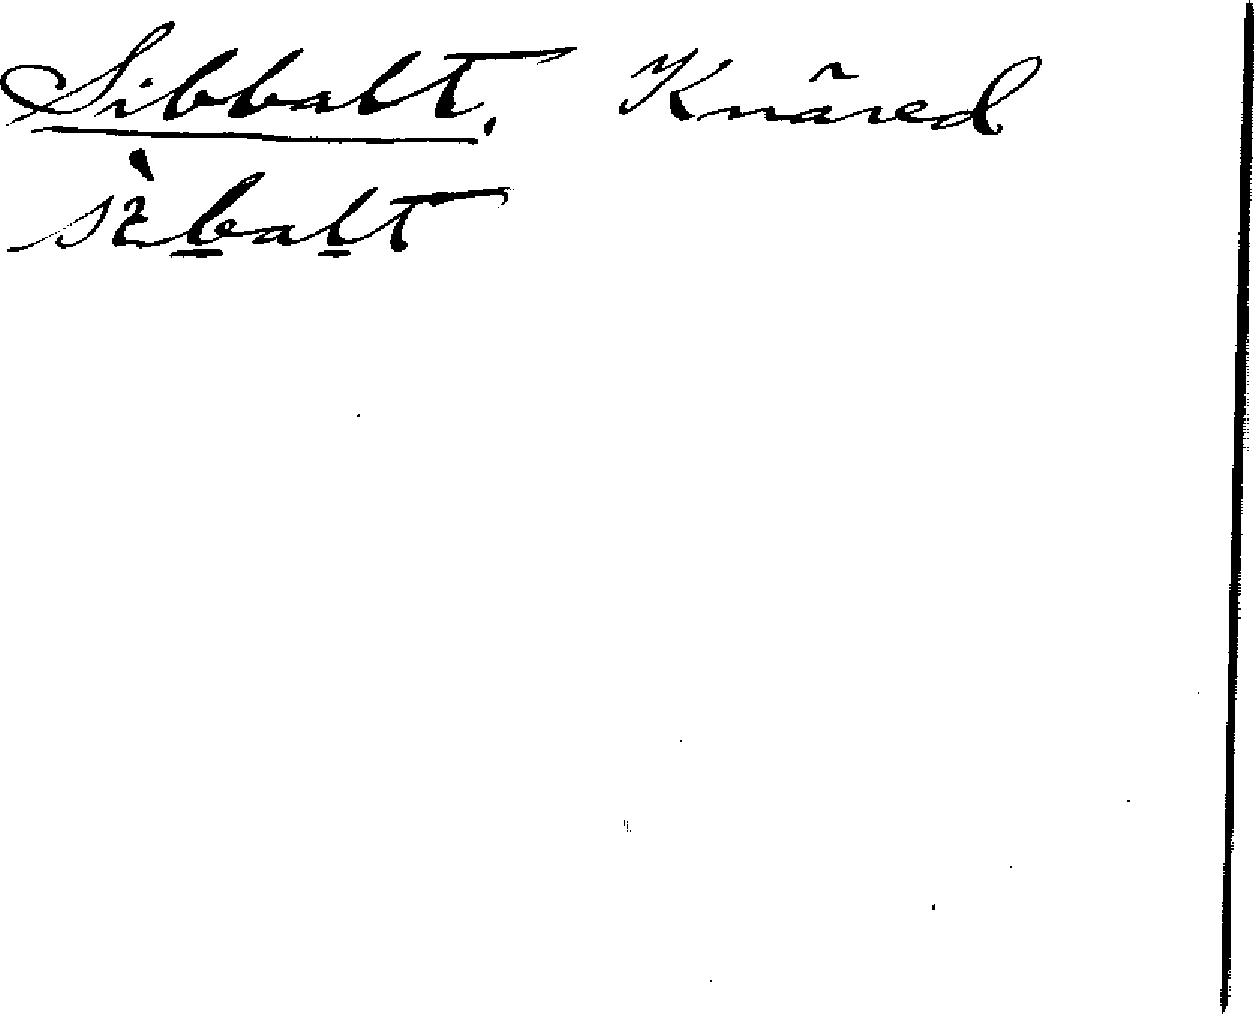 Sibbalt. Knäred
sìbalt